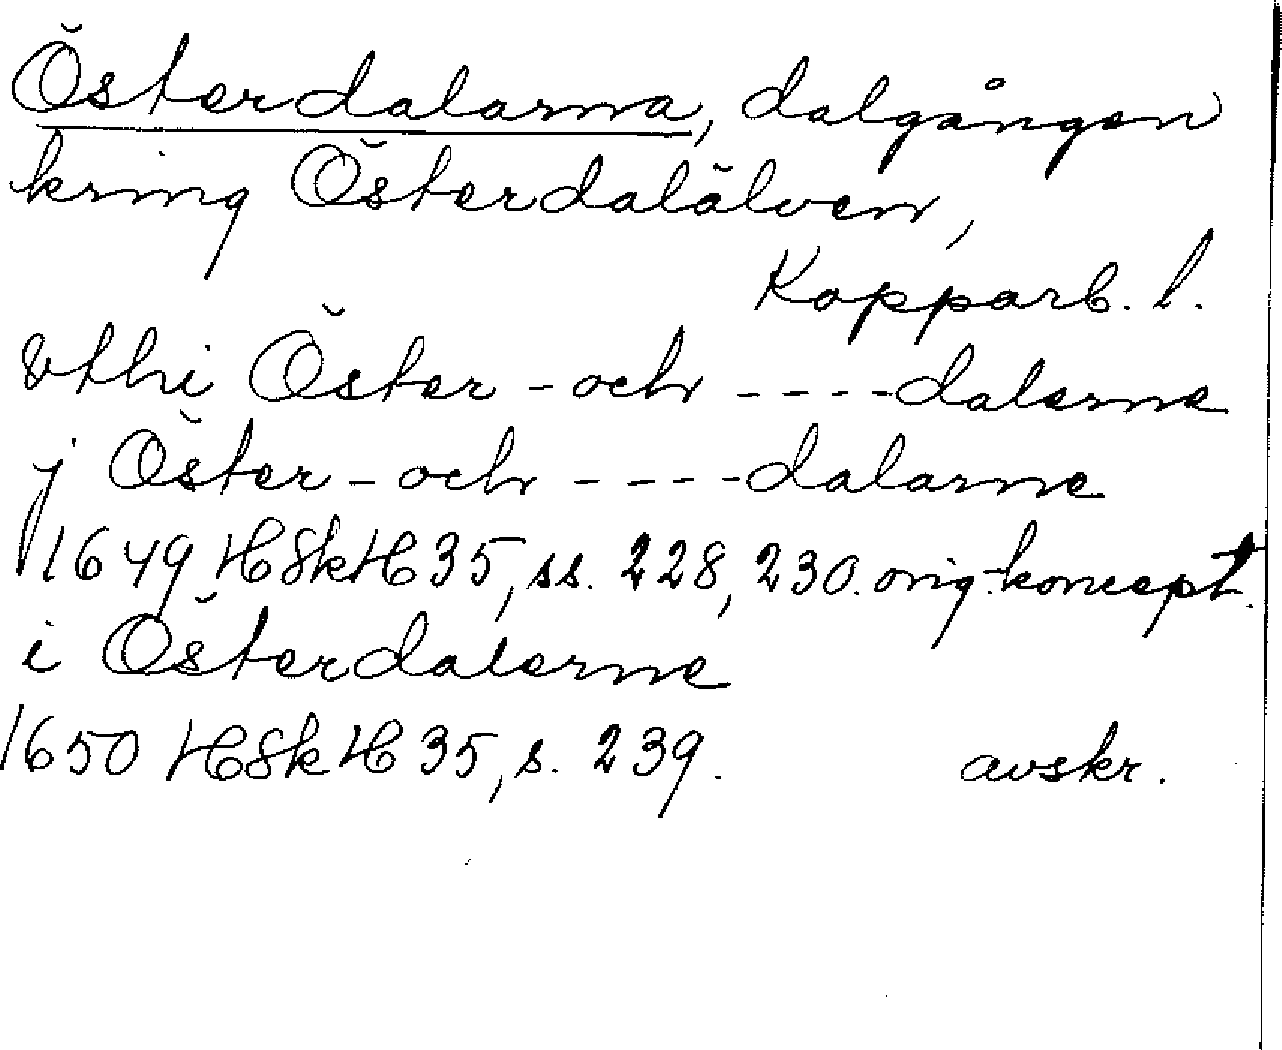 Österdalarna, dalgången
kring Österdalälven,
Kopparb. l.
Vthi Öster - och ----dalerne
j Öster - och ----dalarne
1649 HSkH 35, ss. 228, 230. orig. koncept.
i Österdalerne
1650 HSkH 35, s. 239. avskr.